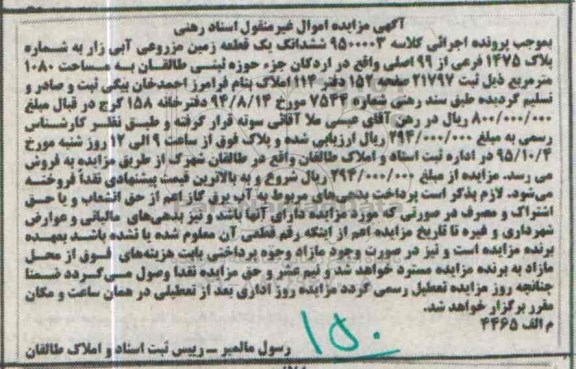 آگهی مزایده اموال غیرمنقول اسناد رهنی
بموجب پرونده اجرائی کلاسه ۹۵۰۰۰۰۳ ششدانگ یک قطعه زمین مزروعی آبی زار به شماره
پلاک ۱۴۷۵ فرعی از ۹۹ اصلی واقع در اردکان جزء حوزه ثبتی طالقان به مساحت ۱۰۸۰
مترمربع ذیل ثبت ۲۱۷۹۷ صفحه ۱۵۲ دفتر ۱۱۴ املاک بنام فرامرز احمدخان بیگی ثبت و صادر و
تسلیم گردیده طبق سند رهنی شماره ۷۵۴۲ مورخ ۹۴/۸/۱۴ دفترخانه ۱۵۸ کرج در قبال مبلغ
۸۰۰/۰۰۰/۰۰۰ ریال در رهن آقای عیسی ملا آقائی سوته قرار گرفته و طبق نظر کارشناس
رسمی به مبلغ ۲۹۴/۰۰۰/۰۰۰ ریال ارزیابی شده و پلاک فوق از ساعت ۹ الی ۱۲ روز شنبه مورخ
۹۵/۱۰/۴ در اداره ثبت اسناد و املاک طالقان واقع در طالقان شهرک از طریق مزایده به فروش
می رسد. مزایده از مبلغ ۲۹۴/۰۰۰/۰۰۰ ریال شروع و به بالاترین قیمت پیشنهادی نقداً فروخته
می‌شود. لازم بذکر است پرداخت بدهی‌های مربوط به آب برق گاز اعم از حق انشعاب و یا حق
اشتراک و مصرف در صورتی که مورد مزایده دارای آنها باشد و نیز بدهی‌های مالیاتی و عوارض
شهرداری و غیره تا تاریخ مزایده اعم از اینکه رقم قطعی آن معلوم شده یا نشده باشد بعهده
برنده مزایده است و نیز در صورت وجود مازاد وجوه پرداختی بابت هزینه‌های فوق از محل
مازاد به برنده مزایده مسترد خواهد شد و نیم عشر و حق مزایده نقدا وصول می‌گردد ضمنا
چنانچه روز مزایده تعطیل رسمی گردد مزایده روز اداری بعد از تعطیلی در همان ساعت و مکان
مقرر برگزار خواهد شد.
م الف ۴۴۶۵
۱۵۰
رسول مالمیر ــ رییس ثبت اسناد و املاک طالقان